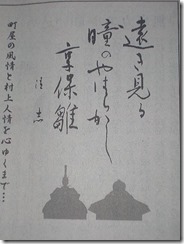 遠き見る
瞳のやはらかし
享保雛
町屋の風情と村上人情を心ゆくまで…